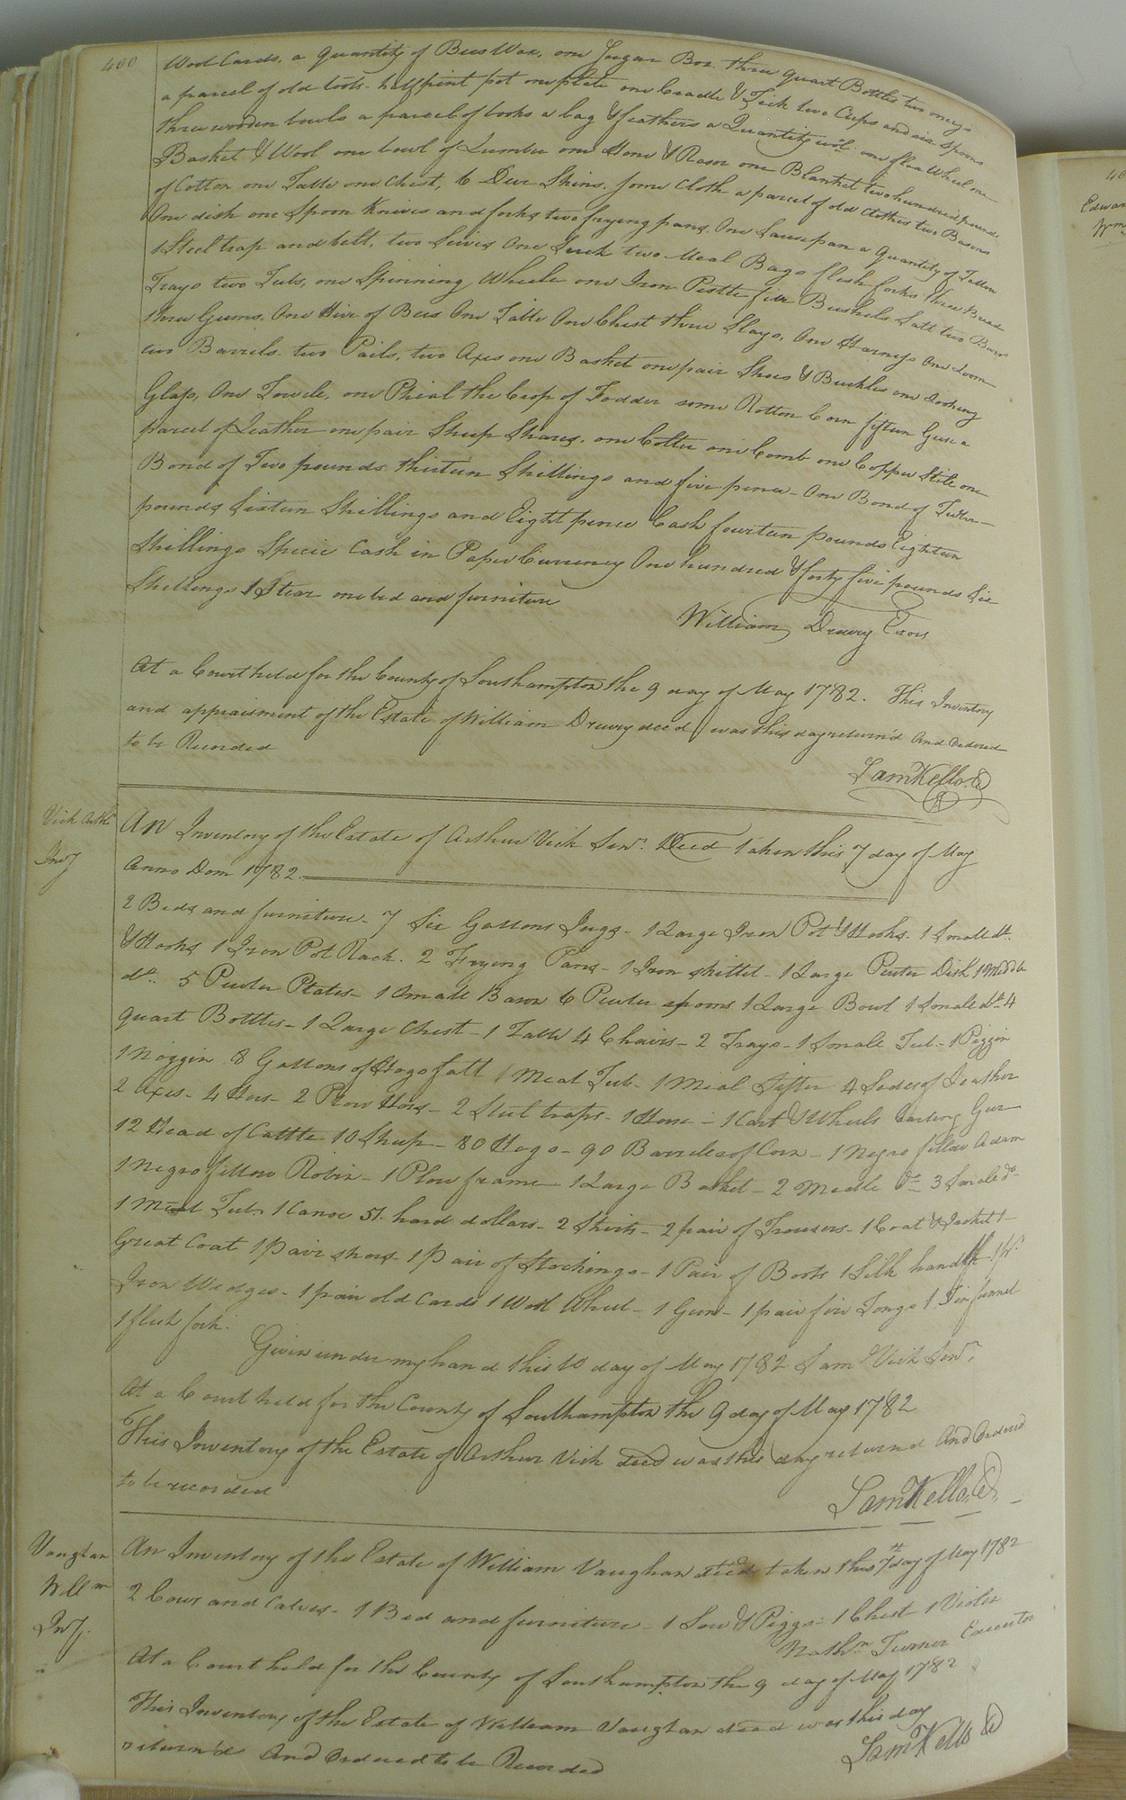 400
Wool Cards, a quantity of Bees Wax, one Sugar Box three quart Bottles two
a parcel of old tools half pint pot one plate one Cradle & Tick two Cups and six Spoons
three wooden bowls a parcel of books a bag & feathers a Quantity one flax Wheel one
Basket & Wool one bowl of one Hone & Rasor one Blanket two hundred pounds
of Cotton one Table one Chest, 6 Deer Skins, some Cloth a parcel of old Clothes two Basons
One dish one Spoon Knives and forks two frying pans, One Sausepan a Quantity of Tallow
1 Steel trap and bell, two Sieves One two Meal Bags flesh forks three Bread
Trays two Tubs, one Spinning Wheele one Iron Pestle five Bushels Salt two
three Gums, One Hive of Bees One Table One Chest three Slays, One Harness One Loom
two Barrels two Pails, two Axes one Basket one pair Shoes & Buckles one Looking
Glass, One Towele, one Phial the Crop of Fodder some Rotten Corn fifteen Geese a
parcel of Leather one pair Sheep Shares, one Colter one Comb one Copper Still one
Bond of Two pounds thirteen Shillings and five pence - One Bond of
pounds Sixteen Shillings and Eight pence Cash fourteen pounds Eighteen
Shillings Specie Cash in Paper Currency One hundred & forty five pounds Six
Shillings 1 Steer one bed and furniture
William Drewry Exor
At a Court held for the County of Southampton the 9 day of May 1782. This Inventory
and appraisment of the Estate of William Drewry decd was this day return'd And Ordered
to be Recorded
Sam Kello. Cl
Vick Arthr
Invy
An Inventory of the Estate of Arthur Vick Senr. Decd taken this 7 day of May
Anno Dom 1782.
2 Beds and furniture - 7 Six Gallons Jugs - 1 Large Iron Pot & Hooks. 1 Small do.
& Hooks 1 Iron Pot Rack. 2 Frying Pans - 1 Iron skillet - 1 Large Pewter Dish 1 Middle
do. 5 Pewter Plates - 1 Small Bason 6 Pewter spoons 1 Large Bowl 1 Small do. 4
quart Bottles - 1 Large Chest - 1 Table 4 Chairs - 2 Trays - 1 Small Tub - 1 Piggin
1 Noggin 8 Gallons of Hogs fatt 1 Meat Tub - 1 Meal Sifter 4 Sides of Leather
2 Axes - 4 Hoes - 2 Plow Hoes - 2 Steel traps - 1 Horse - 1 Cart & Wheels Carting Geer
12 Head of Cattle 10 Sheep - 80 Hogs - 90 Barrels of Corn - 1 Negro fellow Adam
1 Negro fellow Robin - 1 Plow frame 1 Large Basket - 2 Middle Do 3 Smale do
1 Meal Tub 1 Canoe 51 hard dollars - 2 Shirts - 2 pair of Trousers - 1 Coat & Jacket 1
Great Coat 1 Pair shoes - 1 Pair of Stockings - 1 Pair of Boots 1 Silk handkf 1 pr.
Iron Wedges - 1 pair old Cards 1 Wool Wheel - 1 Gun - 1 pair fire Tongs 1 Tin funnel
1 flesh fork.
Given under my hand this 10 day of May 1782 Saml Vick Senr.
At a Court held for the County of Southampton the 9 day of May 1782
This Inventory of the Estate of Arthur Vick decd was this day returned And Ordered
to be recorded
Sam Kello. Cl.
Vaughan
Willm
Invy.
An Inventory of the Estate of William Vaughan decd taken this 7th day of May 1782
2 Cows and Calves - 1 Bed and furniture - 1 Sow & Piggs - 1 Chest 1 Violin
Nathn Turner Executor
At a Court held for the County of Southampton the 9 day of May 1782
This Inventory of the Estate of William Vaughan decd was this day
return'd And Ordered to be Recorded
Sam Kello Cl